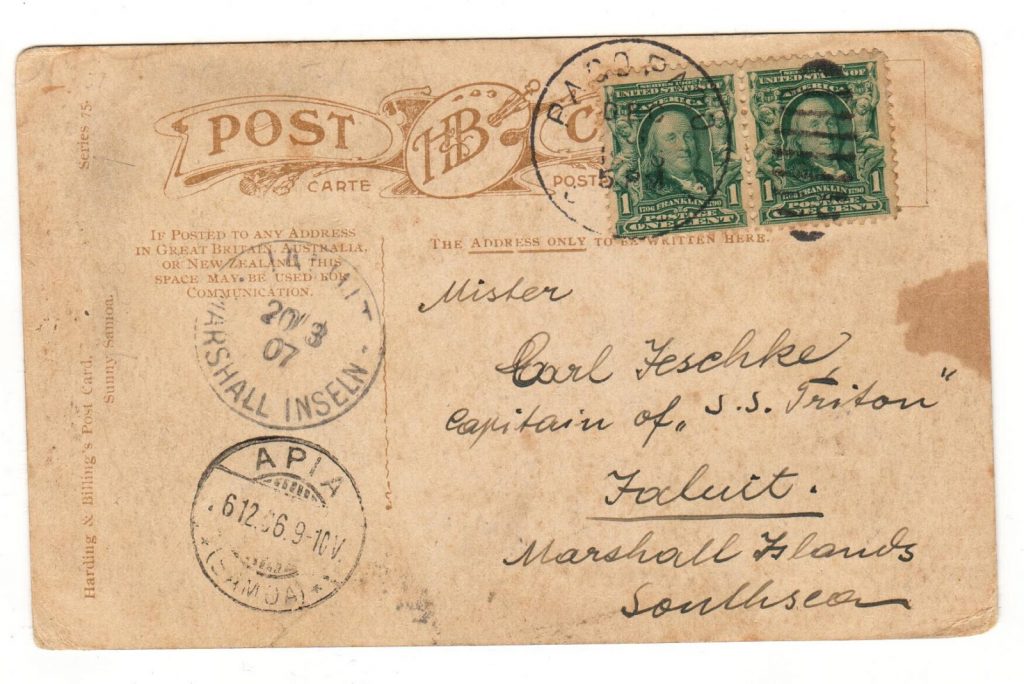 POST
HB
CARTE
POST
Series 75.
Harding & Billing's Post Card.
Sunny Samoa.
IF POSTED TO ANY ADDRESS
IN GREAT BRITAIN, AUSTRALIA,
OR NEW ZEALAND, THIS
SPACE MAY BE USED FOR
COMMUNICATION.
THE ADDRESS ONLY TO BE WRITTEN HERE.
PAGO PAGO
UNITED STATES OF
AMERICA
1706 FRANKLIN 1790
1 POSTAGE 1
ONE CENT
UNITED STATES OF
AMERICA
1706 FRANKLIN 1790
1 POSTAGE 1
ONE CENT
JALUIT
20/3
07
MARSHALL INSELN
APIA
6.12.06.9-10V
(SAMOA)
Mister
Carl Jeschke,
Capitain of „S.S. Triton“
Jaluit.
Marshall Islands
Southsea